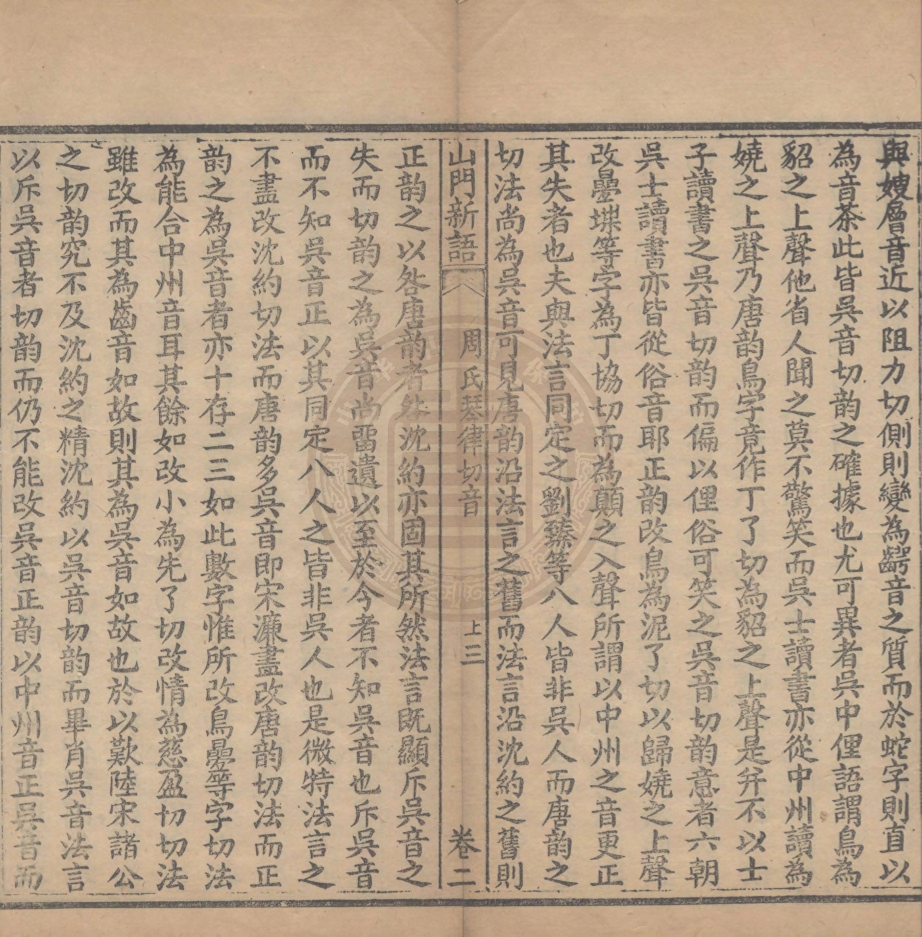 與嫂層音近以阻力切側則變為齶音之質而於蛇字則直以
為音茶此皆吳音切韵之確據也尤可異者吳中俚語謂鳥為
貂之上聲他省人聞之莫不驚笑而吳士讀書亦從中州讀為
嬈之上聲乃唐韵鳥字竟作丁了切為貂之上聲是并不以士
子讀書之吳音切韵而偏以俚俗可笑之吳音切韵意者六朝
吳士讀書亦皆從俗音耶正韵改鳥為泥了切以歸嬈之上聲
改疊堞等字為丁協切而為顛之入聲所謂以中州之音更正
其失者也夫與法言同定之劉臻等八人皆非吳人而唐韵之
切法尚為吳音可見唐韵沿法言之舊而法言沿沈約之舊則
山門新語 周氏琴律切音 上三 卷二
正韵之以咎唐韵者咎沈約亦固其所然法言既顯斥吳音之
失而切韵之為吳音尚畱遺以至於今者不知吳音也斥吳音
而不知吳音正以其同定八人之皆非吳人也是微特法言之
不盡改沈約切法而唐韵多吳音即宋濂盡改唐韵切法而正
韵之為吳音者亦十存二三如此數字惟所改鳥疊等字切法
為能合中州音耳其餘如改小為先了切改情為慈盈切切法
雖改而其為齒音如故則其為吳音如故也於以歎陸宋諸公
之切韵究不及沈約之精沈約以吳音切韵而畢肖吳音法言
以斥吳音者切韵而仍不能改吳音正韵以中州音正吳音而